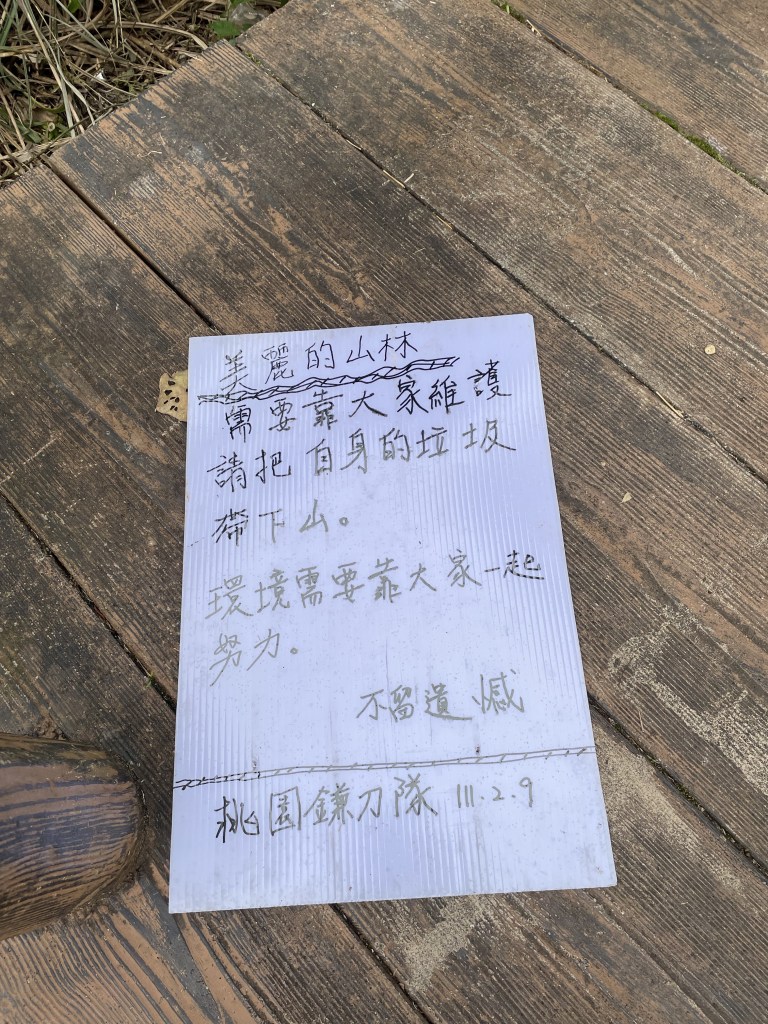 美麗的山林
需要靠大家維護
請把自身的垃圾
帶下山。
環境需要靠大家一起
努力。
不留遺憾
桃園鐮刀隊 111.2.9